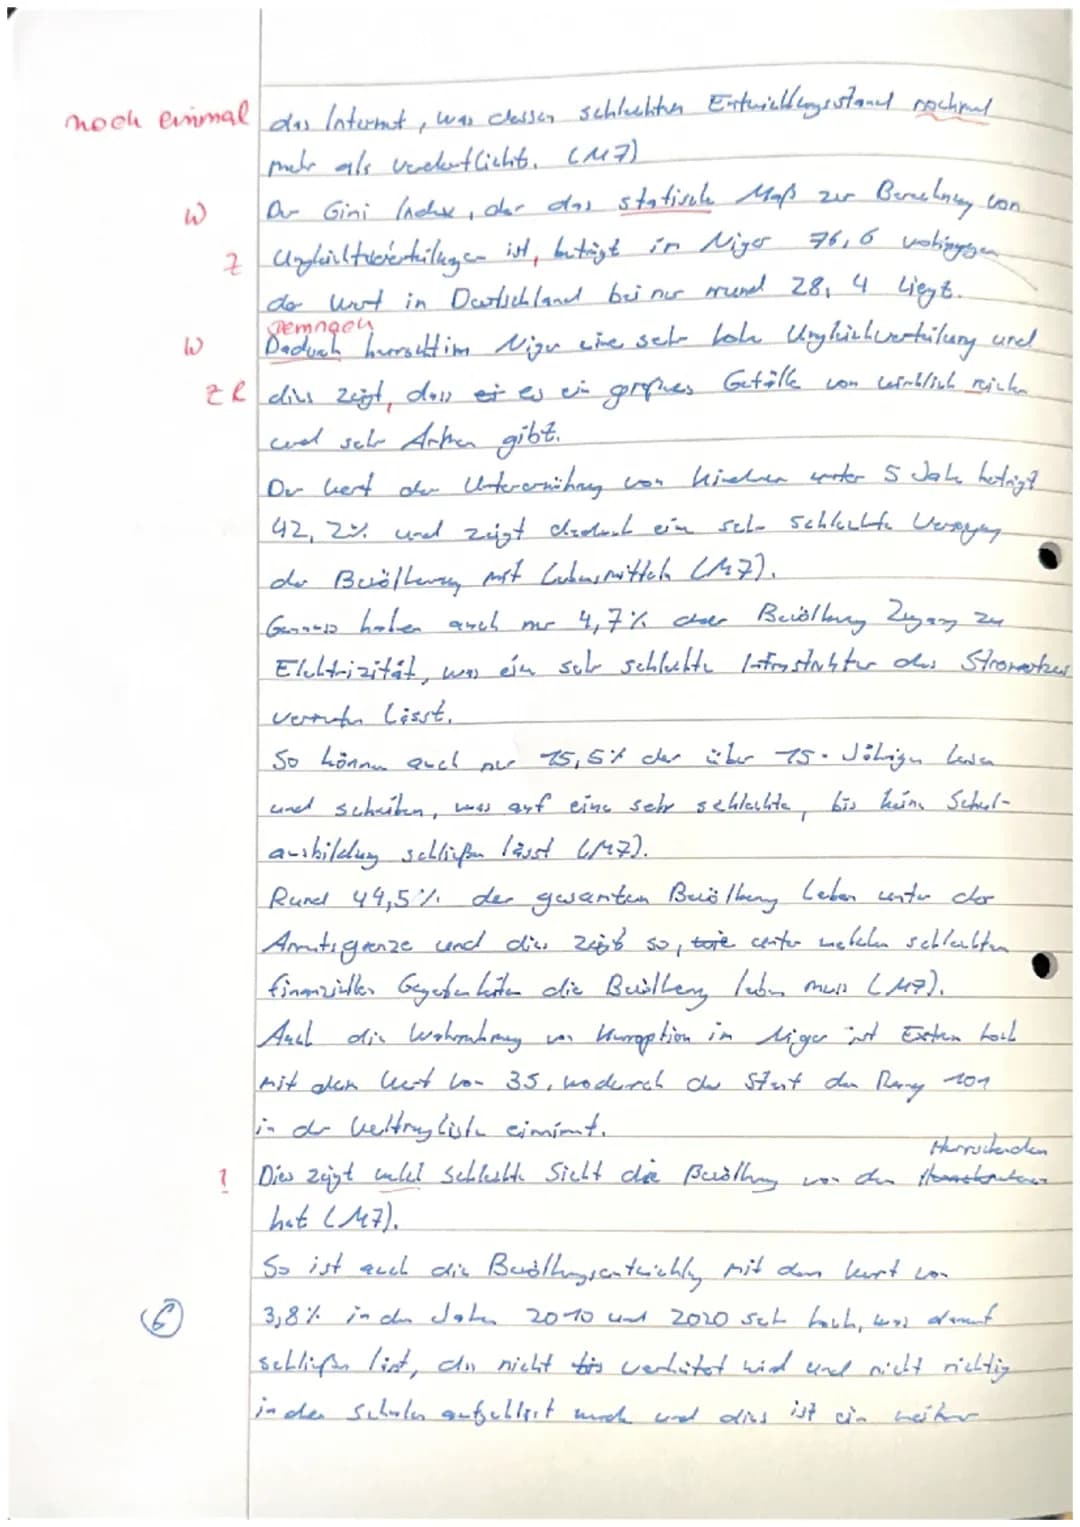 noch einmal das Internet, was dessen schlechten Entwicklungsstand nochmal
mehr als verdeutlicht. (M7)
W Der Gini Index, der das statische Maß zur Berechnung von
Z Ungleichverteilungen ist, beträgt im Niger 76,6
der Wert in Deutschland bei nur rund 28,4 liegt.
Demnach
W Dadurch herrscht im Niger eine sehr hohe Ungleichverteilung und
Z R dies zeigt, dass er es ein großes Gefälle von wirklich reichen
und sehr Armen gibt.
Der Wert der Unterernährung von Kindern unter 5 Jahre beträgt
42,2% und zeigt dadurch ein sehr schlechte Versorgung
der Bevölkerung mit Lebensmitteln (M7).
Genauso haben auch nur 4,7% der Bevölkerung Zugang zu
Elektrizität, was ein sehr schlechte Infrastruktur des Stromnetzes
vermuten lässt.
So können auch nur 15,5% der über 15-Jährigen lesen
und schreiben, was auf eine sehr schlechte, bis keine Schul-
ausbildung schließen lässt (M7).
Rund 44,5% der gesamten Bevölkerung leben unter der
Armutsgrenze und dies zeigt so, unter welchen schlechten
finanziellen Gegebenheiten die Bevölkerung leben muss (M7).
Auch die Wahrnehmung von Korruption im Niger ist Extrem hoch
mit dem Wert von 35, wodurch der Staat den Rang 101
in der Weltrangliste einnimmt.
Herrschenden
! Dies zeigt welch schlechte Sicht die Bevölkerung von den
hat (M7).
So ist auch die Bevölkerungsentwicklung mit dem Wert von
6 3,8% in den Jahren 2010 und 2020 sehr hoch, was darauf
schließen lässt, das nicht verhütet wird und nicht richtig
in den Schulen aufgeklärt wurde und dies ist ein weiter